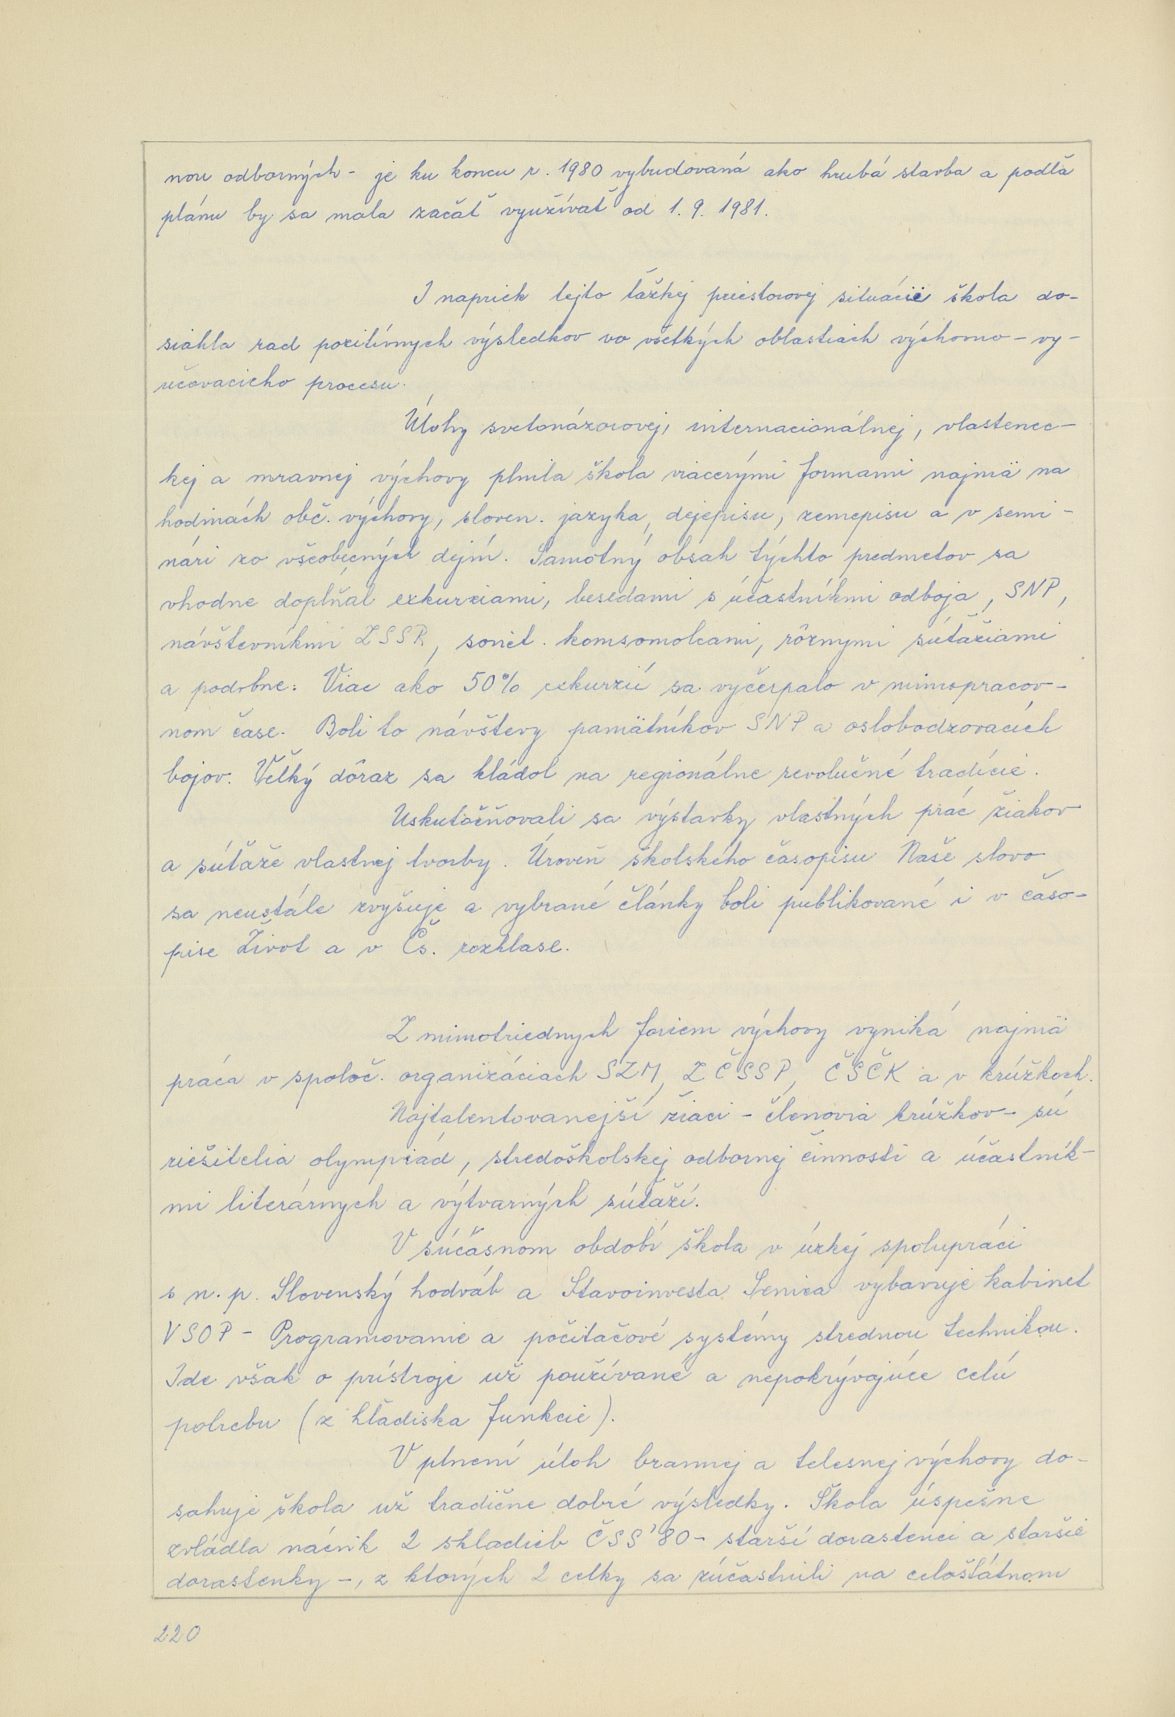 nou odborných - je ku koncu r. 1980 vybudovaná ako hrubá stavba a podľa
plánu by sa mala začať využívať od 1. 9. 1981.
I napriek tejto ťažkej priestorovej situácii škola do-
siahla rad pozitívnych výsledkov vo všetkých oblastiach výchovno - vy-
učovacieho procesu.
Úlohy svetonázorovej, internacionálnej, vlastenec-
kej a mravnej výchovy plnila škola viacerými formami najmä na
hodinách obč. výchovy, sloven. jazyka, dejepisu, zemepisu a v semi-
nári zo všeobecných dejín. Samotný obsah týchto predmetov sa
vhodne doplňal exkurziami, besedami s účastníkmi odboja, SNP,
návštevníkmi ZSSR, soviet. komsomolcami, rôznymi súťažiami
a podobne. Viac ako 50% exkurzií sa vyčerpalo v mimopracov-
nom čase. Boli to návštevy pamätníkov SNP a oslobodzovacích
bojov. Veľký dôraz sa kládol na regionálne revolučné tradície.
Uskutočňovali sa výstavky vlastných prác žiakov
a súťaže vlastnej tvorby. Úroveň školského časopisu Naše slovo
sa neustále zvyšuje a vybrané články boli publikované i v časo-
pise Život a v Čs. rozhlase.
Z mimotriednych foriem výchovy vyniká najmä
práca v spoloč. organizáciach SZM, ZČSSP, ČSČK a v krúžkoch.
Najtalentovanejší žiaci - členovia krúžkov - sú
riešitelia olympiád, stredoškolskej odbornej činnosti a účastník-
mi literárnych a výtvarných súťaží.
V súčasnom období škola v úzkej spolupráci
s n. p. Slovenský hodváb a Stavoinvesta Senica vybavuje kabinet
VSOP - Programovanie a počítačové systémy strednou technikou.
Ide však o prístroje už používané a nepokrývajúce celú
potrebu (z hľadiska funkcie).
V plnení úloh brannej a telesnej výchovy do-
sahuje škola už tradične dobré výsledky. Škola úspešne
zvládla nácvik 2 skladieb ČSS '80 - starší dorastenci a staršie
dorastenky -, z ktorých 2 celky sa zúčastnili na celoštátnom
220